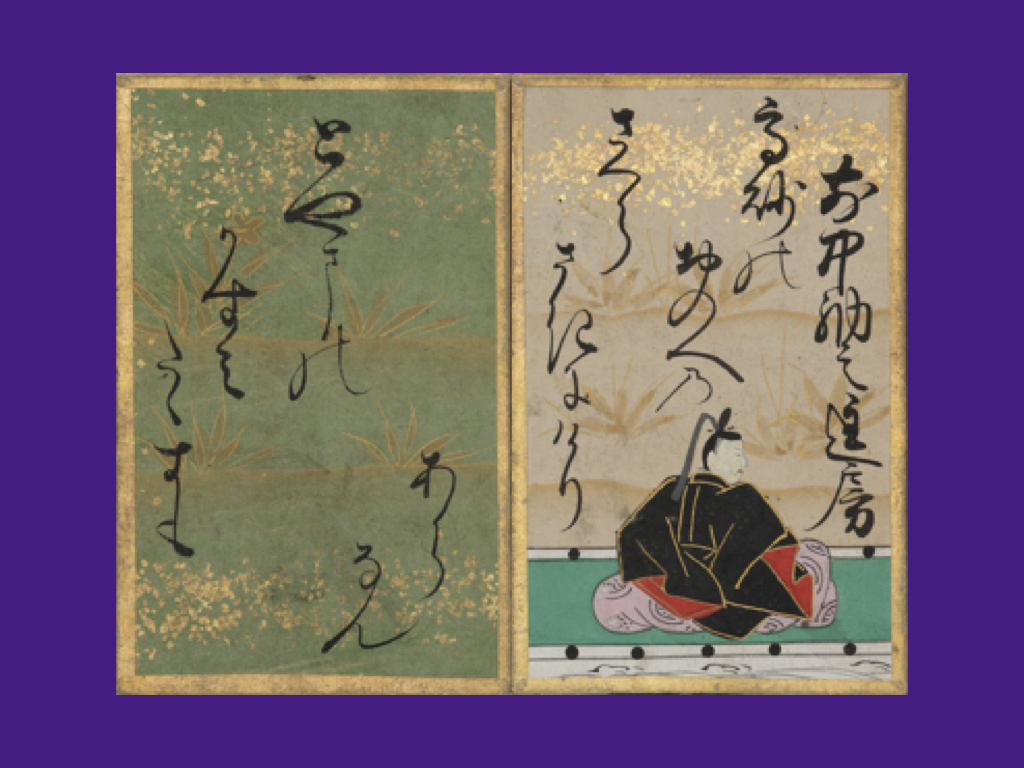 前中納言匡房
高砂の
おのへの
さくら
さきにけり
とやまの
かすみ
たゝすも
あら
なん